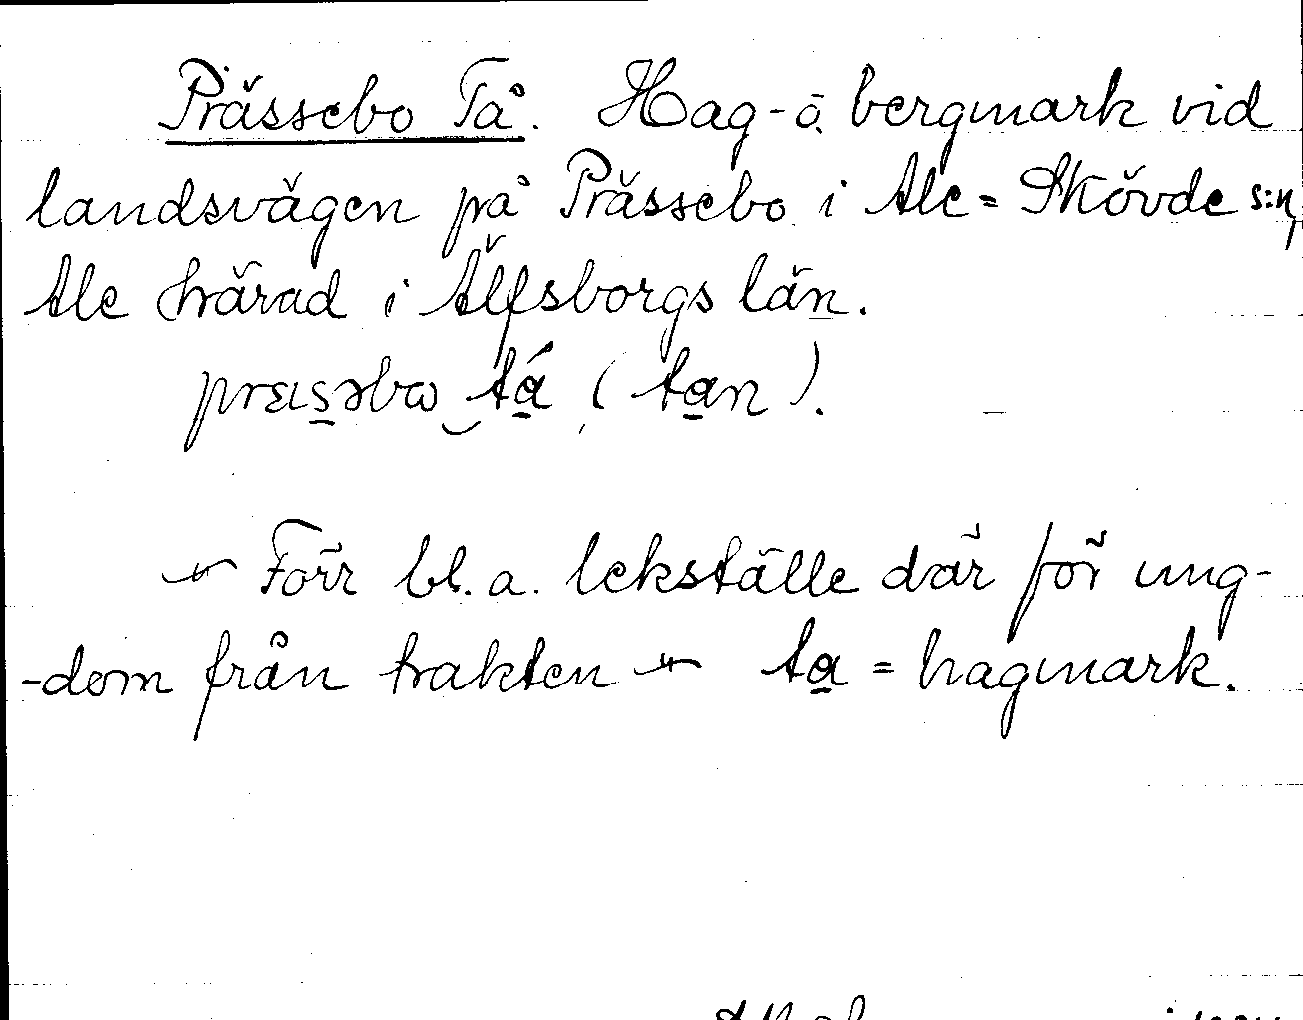 Prässebo Tå. Hag- o. bergmark vid
landsvägen på Prässebo i Ale-Skövde s:n,
Ale härad i Älfsborgs län.
præɩsəbω tá (tan).
Förr bl. a. lekställe där för ung-
-dom från trakten ta = hagmark.